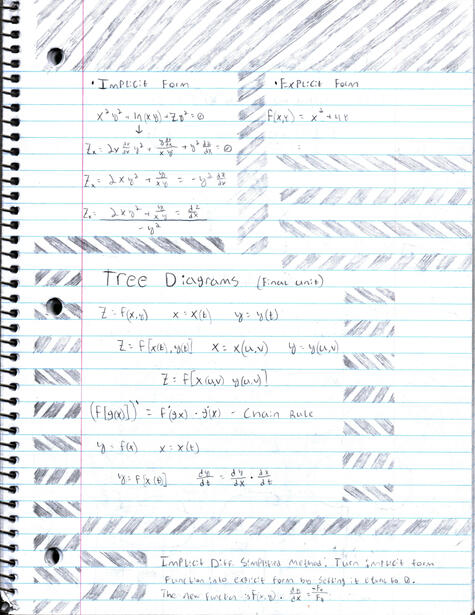 • Implicit Form
• Explicit Form
x²y² + ln(xy) + zy² = 0
F(x,y) = x² + 4y
↓
Zx = 2x dx/dx y² + y dx/dx / xy + y² dz/dx = 0
Zx = 2xy² + y/xy = -y² dz/dx
Zx = 2xy² + y/xy / -y² = dz/dx
Tree Diagrams (Final Unit)
Z = F(x,y) x = x(t) y = y(t)
Z = F[x(t), y(t)] x = x(u,v) y = y(u,v)
Z = F[x(u,v) y(u,v)]
(F[g(x)])' = F'(gx) · g'(x) - Chain Rule
y = f(x) x = x(t)
y = F[x(t)] dy/dt = dy/dx · dx/dt
Implicit Diff. Simplified Method: Turn implicit form
Function into explicit form by setting it equal to 0.
The new function is F(x,y). dy/dx = -Fx/Fy